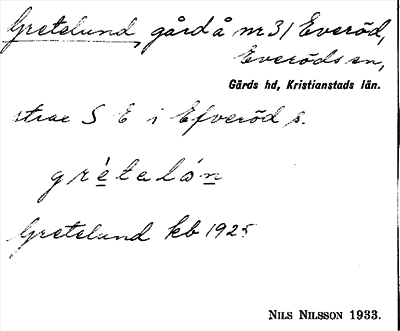 Gretelund, gård å nr 31 Everöd,
Everöds sn,
Gärds hd, Kristianstads län.
strax S E i Efveröd s.
grètelón
Gretelund kb 1925
NILS NILSSON 1933.